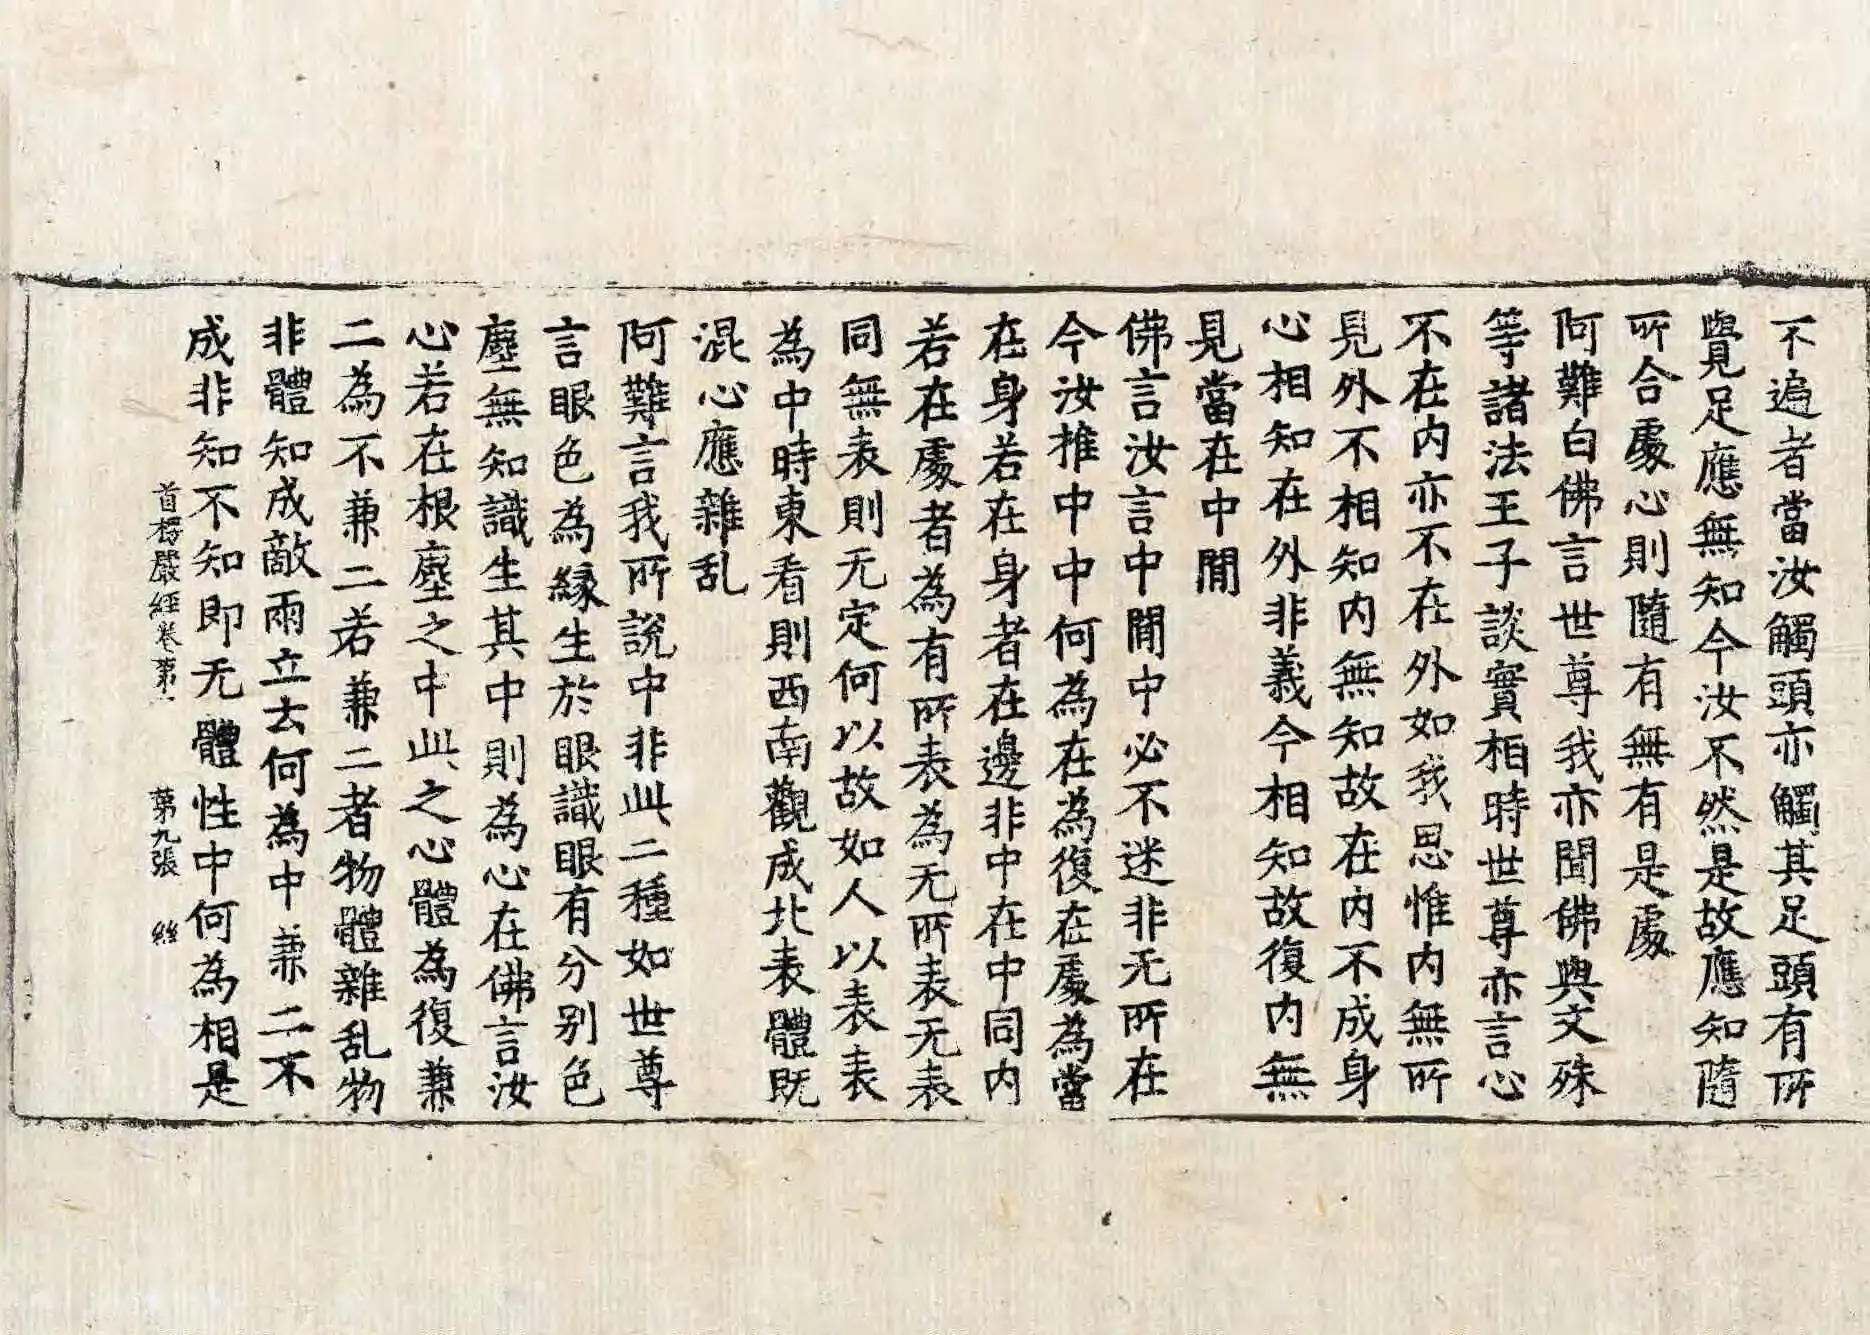 不遍者當汝觸頭亦觸其足頭有所
覺足應無知今汝不然是故應知隨
所合處心則隨有無有是處
阿難白佛言世尊我亦聞佛與文殊
等諸法王子談實相時世尊亦言心
不在内亦不在外如我思惟内無所
見外不相知内無知故在内不成身
心相知在外非義今相知故復内無
見當在中間
佛言汝言中間中必不迷非无所在
今汝推中中何為在為復在處為當
在身若在身者在邊非中在中同内
若在處者為有所表為无所表无表
同無表則无定何以故如人以表表
為中時東看則西南觀成北表體既
混心應雜乱
阿難言我所說中非此二種如世尊
言眼色為緣生於眼識眼有分別色
塵無知識生其中則為心在佛言汝
心若在根塵之中此之心體為復兼
二為不兼二若兼二者物體雜乱物
非體知成敵兩立去何為中兼二不
成非知不知即无體性中何為相是
首楞嚴經卷第一 第九張 絲